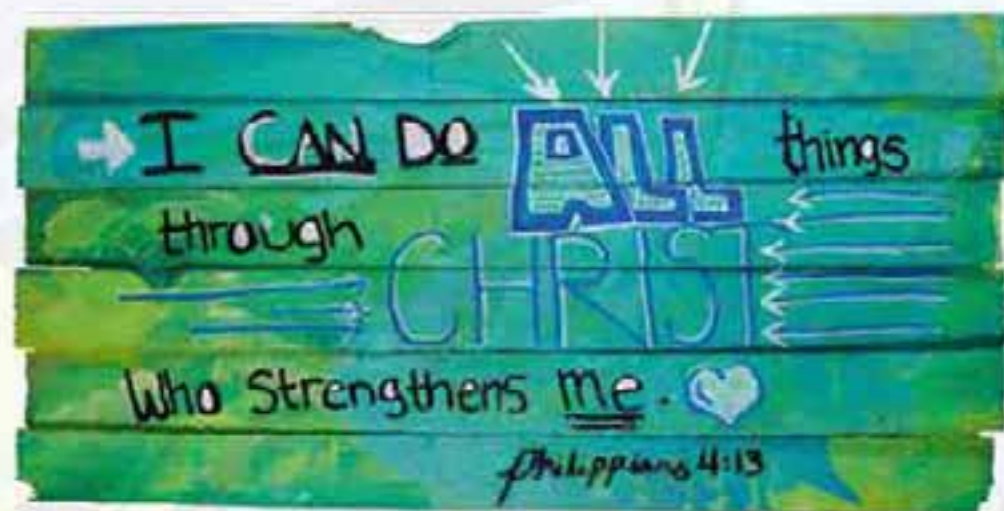 I CAN DO ALL things
through CHRIST
Who Strengthens me.
Philippians 4:13